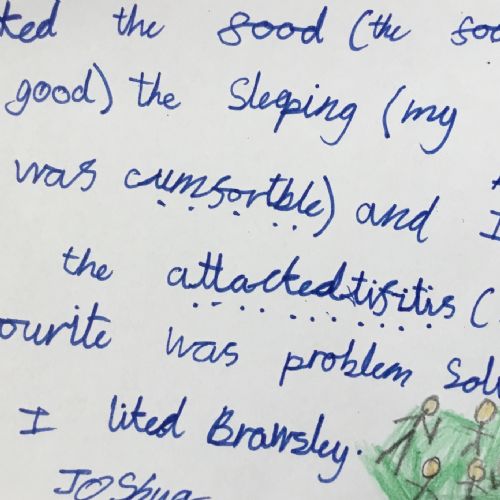 ked the food (the foo
good) the Sleeping (my
was cumsortble) and I
the attackedtifitis (
ourite was problem Solv
I liked Bramsley.
Joshua